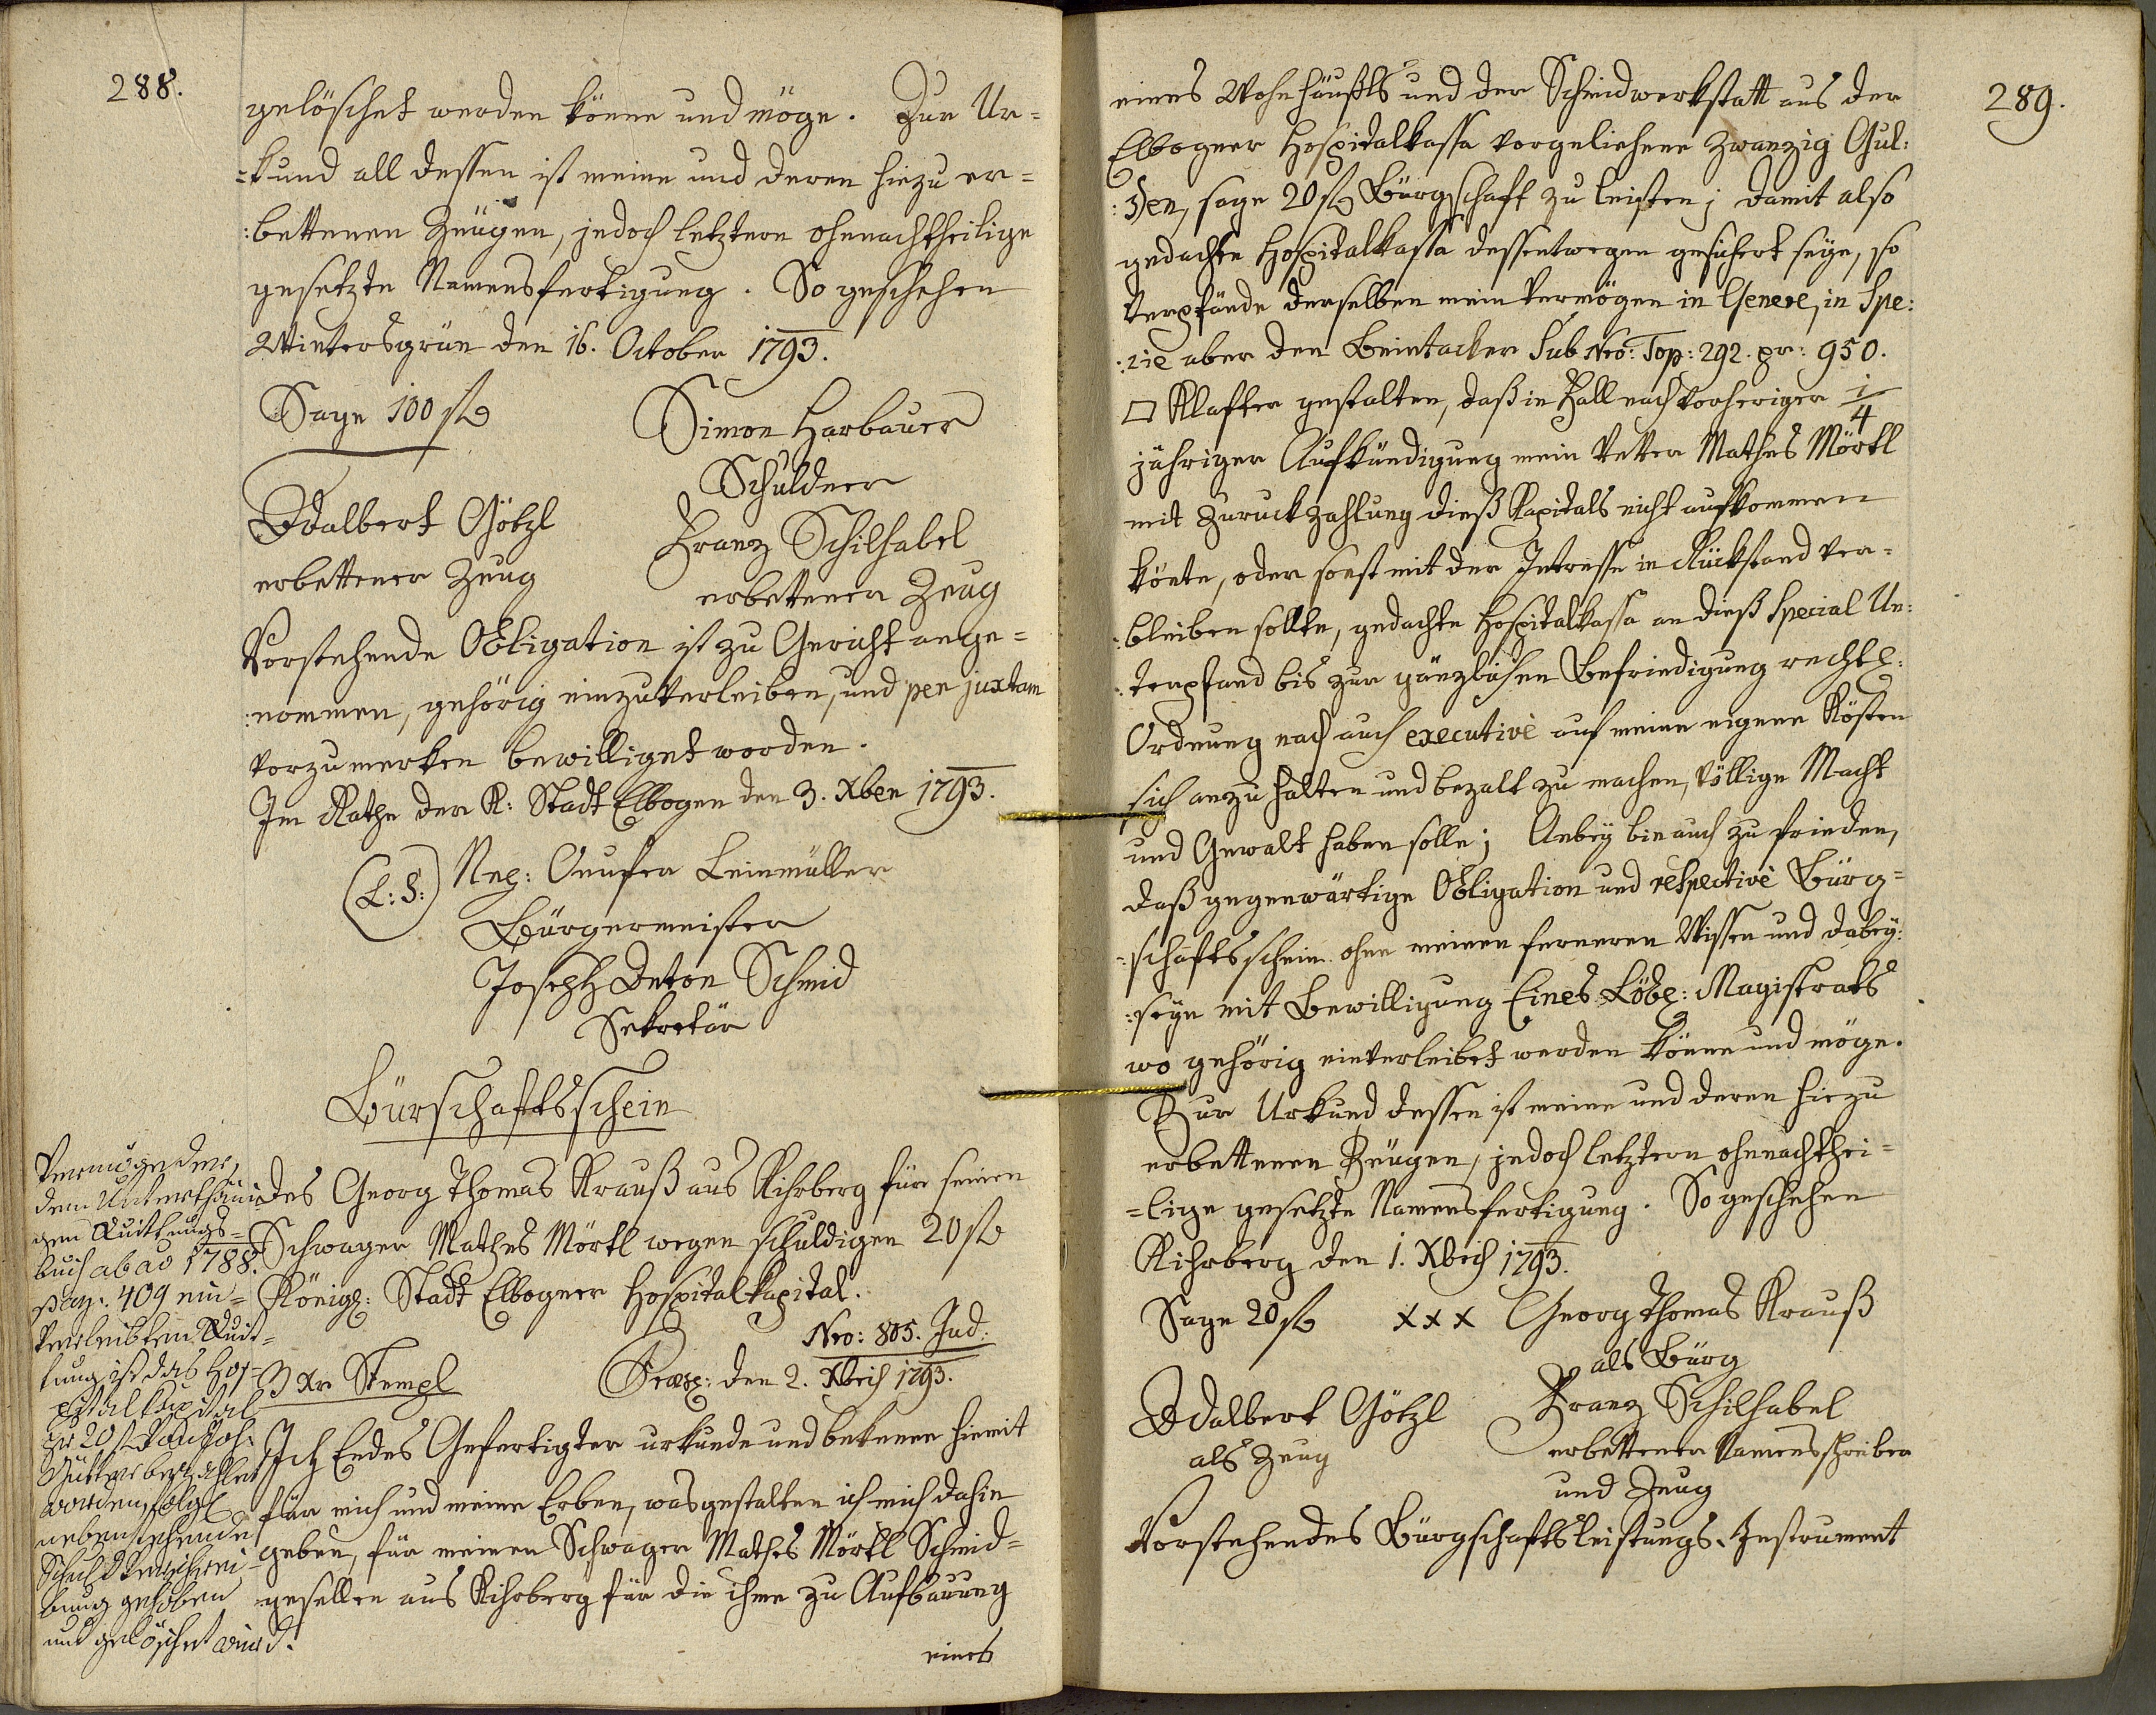 288.
gelöschet werden könne und möge. Zur Ur=
=kund all dessen ist meine und deren hiezu er=
:bettenen Zeügen, jedoch letztern ohnnachtheilige
gesetzte Namensfertigung. So geschehen
Wintersgrün den 16. October 1793.
Sage 100 f
Simon Harbauer
Schuldner
Adalbert Götzl
erbettener Zeug
Franz Schilhabel
erbettener Zeug
Vorstehende Obligation ist zu Gericht ange=
:nommen, gehörig einzuverleiben, und per juxtam
vorzumerken bewilliget worden.
Im Rathe der K: Stadt Elbogen den 3. Xber 1793.
(L:S:)
Onufer Leinmüller
Bürgermeister
Joseph Anton Schmid
Sekretär
Bürschaftsschein
des Georg Thomas Krauß aus Kihrberg für seinen
Schwager Mathes Mörtl wegen schuldigen 20 f
Königl: Stadt Elbogner Hospitalkapital.
Nro: 805. Jud:
3 Xr Stempl
Præs: den 2. Xbris 1793.
Ich Endes Gefertigter urkunde und bekenne hiemit
für mich und meine Erben, was gestalten ich mich dahin
geben, für meinen Schwager Mathes Mörtl Schmid=
gesellen aus Kihrberg für die ihme zu Aufbauung
eines
Vermög der,
dem Unterthäni
gen Quittungs=
buch ab ao 1788.
pag. 409 ein=
verleibten Quit=
tung ist das Hos=
pitalkapital
pr 20 f von Joh.
bezahlet
worden, folgl
nebenstehende
Schuldverschrei=
bung gehoben
und gelöschet wird.
289.
eines Wohnhäußls und der Schmidwerkstatt aus der
Elbogner Hospitalkassa vorgeliehene Zwanzig Gul:
:den, sage 20 f Bürgschaft zu leisten; damit also
gedachte Hospitalkassa dessentwegen gesichert seye, so
Verpfände derselben mein Vermögen in Genere, in Spe:
:cie aber den Beintacker Sub Nro: Top: 292. pr: 950.
□ Klafter gestalten, daß in Fall nach vorheriger 1/4
jähriger Aufkündigung mein Vetter Mathes Mörtl
mit Zuruckzahlung dieß Kapitals nicht aufkommen
könte, oder sonst mit der Intresse in Rückstand ver=
:bleiben sollte, gedachte Hospitalkassa an dieß Special Un:
:terpfand bis zur gänzlichen Befriedigung rechtl:
Ordnung nach auch executivè auf meine eigene Kösten
sich anzuhalten und bezalt zu machen, völlige Macht
und Gewalt haben solle; Anbey bin auch zu frieden,
daß gegenwärtige Obligation und respectivè Bürg=
=schaftsschein ohne meinen ferneren Wissen und dabey:
:seyn mit Bewilligung Eines Löbl: Magistrats
wo gehörig einverleibet werden könne und möge.
Zur Urkund dessen ist meine und deren hiezu
erbettenen Zeügen, jedoch letztern ohnnachthei=
=lige gesetzte Namensfertigung. So geschehen
Kihrberg den 1. Xbris 1793.
Sage 20 f
XXX Georg Thomas Krauß
als Bürg
Adalbert Götzl
als Zeug
Franz Schilhabel
erbettener Namensschreiber
und Zeug
Vorstehendes Bürgschaftsleistungs=Instrument